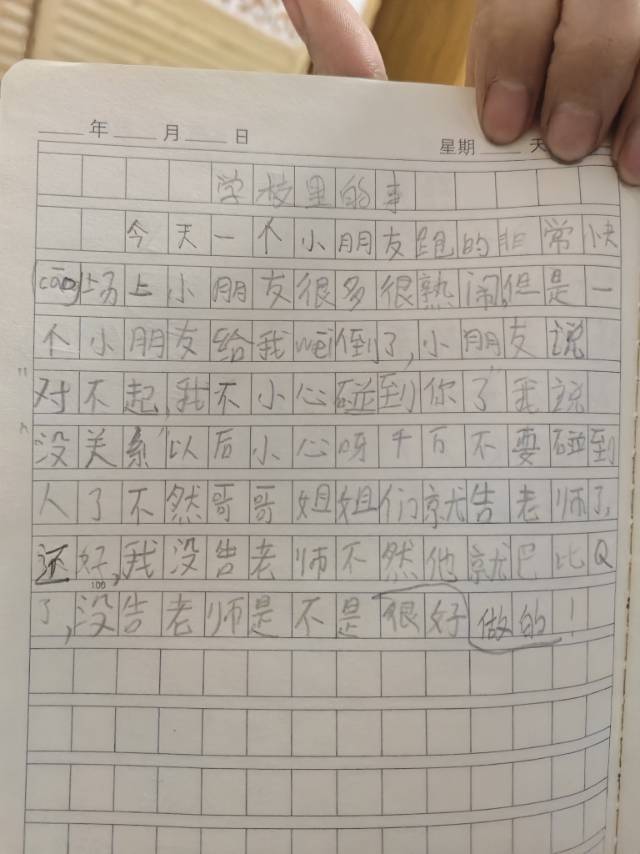 年 月 日 星期 天
学校里的事
今天一个小朋友跑的非常快
cāo场上小朋友很多很熟闹,但是一
个小朋友给我wèi倒了,小朋友说
对不起,我不小心碰到你了我说
没关系以后小心呀千万不要碰到
人了不然哥哥姐姐们就告老师了,
还好,我没告老师不然他就巴比Q
了,没告老师是不是很好做的!